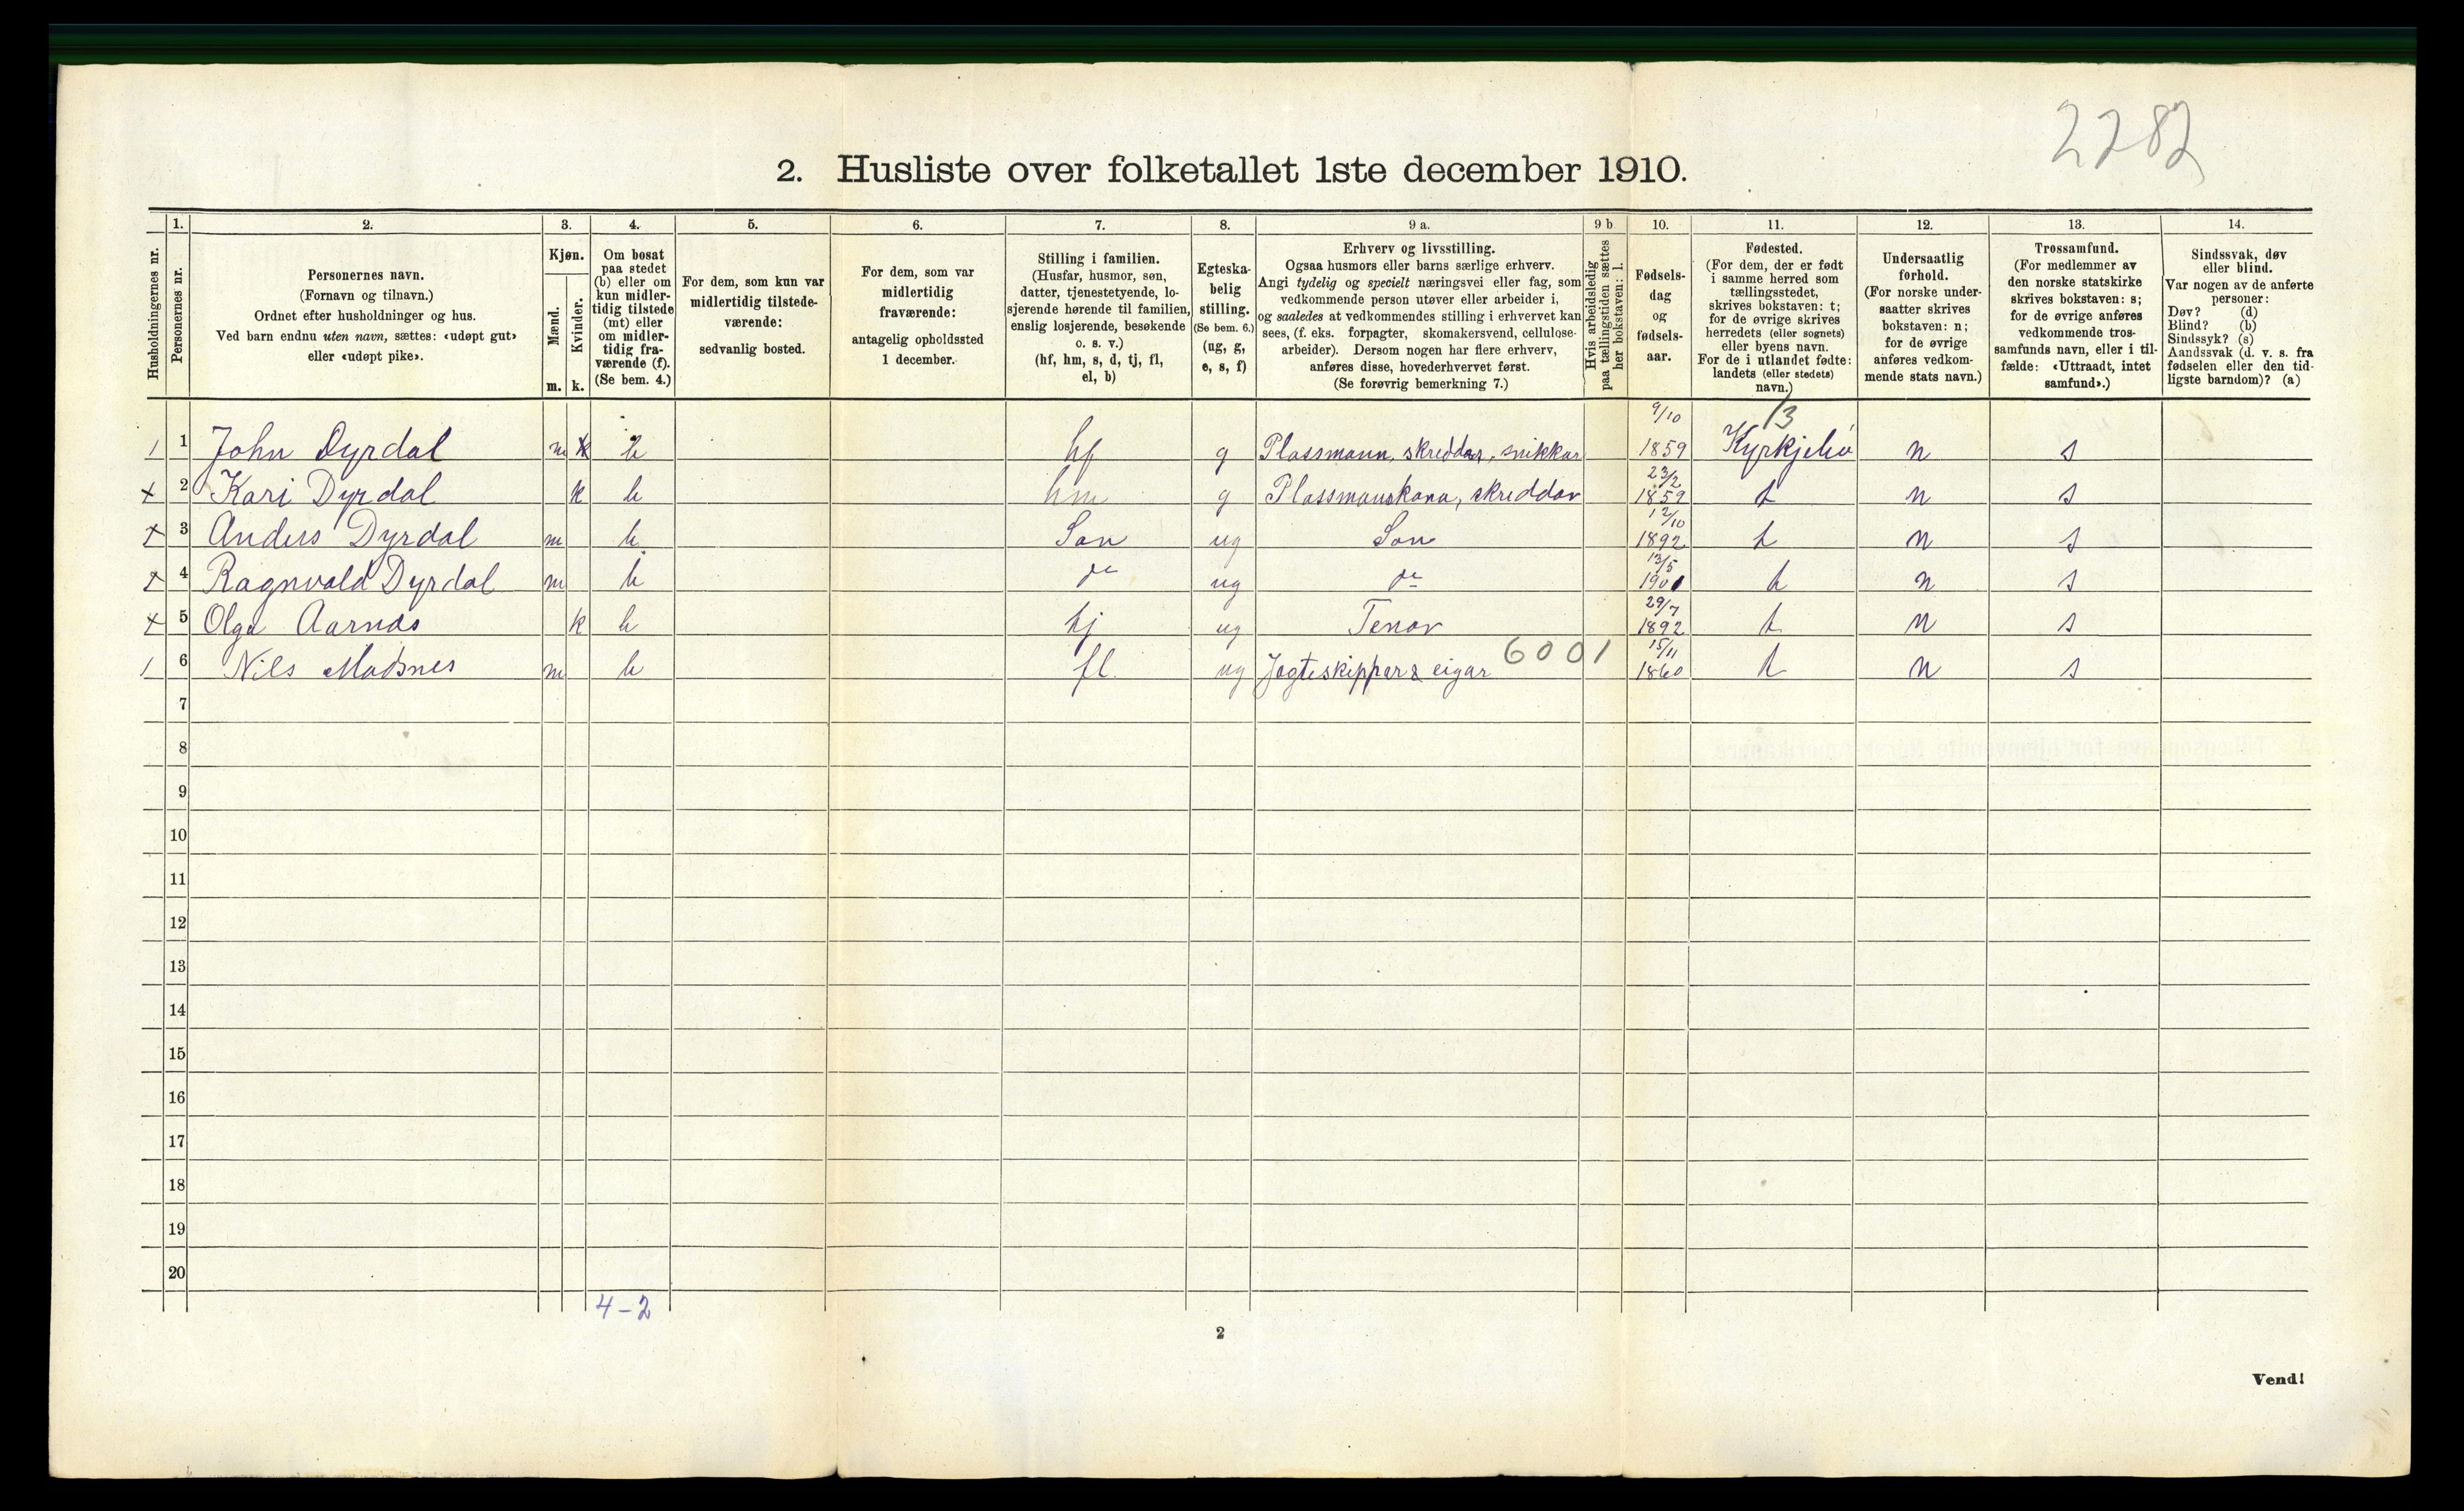 2282
2. Husliste over folketallet 1ste december 1910.
Husholdningernes nr.
1.
Personernes nr.
2.
Personernes navn.
(Fornavn og tilnavn.)
Ordnet efter husholdninger og hus.
Ved barn endnu uten navn, sættes: «udøpt gut»
eller «udøpt pike».
3.
Kjøn.
Mænd.
m.
Kvinder.
k.
4.
Om bosat
paa stedet
(b) eller om
kun midler-
tidig tilstede
(mt) eller
om midler-
tidig fra-
værende (f).
(Se bem. 4.)
5.
For dem, som kun var
midlertidig tilstede-
værende:
sedvanlig bosted.
6.
For dem, som var
midlertidig
fraværende:
antagelig opholdssted
1 december.
7.
Stilling i familien.
(Husfar, husmor, søn,
datter, tjenestetyende, lo-
sjerende hørende til familien,
enslig losjerende, besøkende
o. s. v.)
(hf, hm, s, d, tj, fl,
el, b)
8.
Egteska-
belig
stilling.
(Se bem. 6.)
(ug, g,
e, s, f)
9 a.
Erhverv og livsstilling.
Ogsaa husmors eller barns særlige erhverv.
Angi tydelig og specielt næringsvei eller fag, som
vedkommende person utøver eller arbeider i,
og saaledes at vedkommendes stilling i erhvervet kan
sees, (f. eks. forpagter, skomakersvend, cellulose-
arbeider). Dersom nogen har flere erhverv,
anføres disse, hovederhvervet først.
(Se forøvrig bemerkning 7.)
9 b
Hvis arbeidsledig
paa tællingstiden sættes
her bokstaven: l.
10.
Fødsels-
dag
og
fødsels-
aar.
11.
Fødested.
(For dem, der er født
i samme herred som
tællingsstedet,
skrives bokstaven: t;
for de øvrige skrives
herredets (eller sognets)
eller byens navn.
For de i utlandet fødte:
landets (eller stedets)
navn.)
12.
Undersaatlig
forhold.
(For norske under-
saatter skrives
bokstaven: n;
for de øvrige
anføres vedkom-
mende stats navn.)
13.
Trossamfund.
(For medlemmer av
den norske statskirke
skrives bokstaven: s;
for de øvrige anføres
vedkommende tros-
samfunds navn, eller i til-
fælde: «Uttraadt, intet
samfund».)
14.
Sindssvak, døv
eller blind.
Var nogen av de anførte
personer:
Døv? (d)
Blind? (b)
Sindssyk? (s)
Aandssvak (d. v. s. fra
fødselen eller den tid-
ligste barndom)? (a)
1 1 John Dyrdal m k b hf g Plassmann, skreddar, snikkar 9/10 1859 13 Kyrkjebø n s
x 2 Kari Dyrdal k b hm g Plassmanskona, skreddar 23/2 1859 t n s
x 3 Anders Dyrdal m b Son ug Son 12/10 1892 t n s
x 4 Ragnvald Dyrdal m b do ug do 13/5 1901 t n s
x 5 Olga Aarnæs k b tj ug Tenar 29/7 1892 t n s
1 6 Nils Madsnes m b fl. ug Jagteskippar & eigar 6001 15/11 1860 t n s
7
8
9
10
11
12
13
14
15
16
17
18
19
20
4-2
2
Vend!